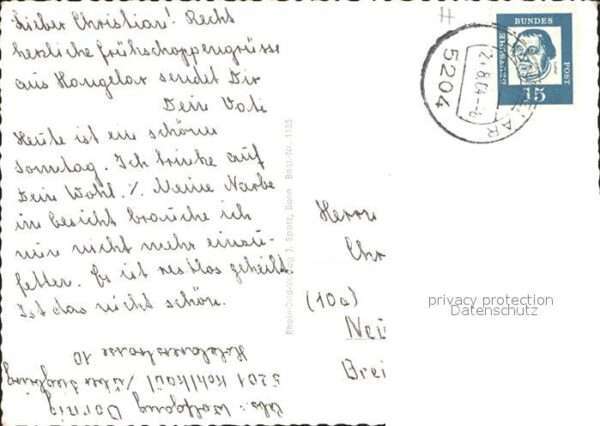 Lieber Christian! Recht
herzliche Frühschoppengrüsse
aus Hangelar sendet Dir
Dein Vati
Heute ist ein schöner
Sonntag. Ich trinke auf
Dein Wohl. /. Meine Narbe
im Gesicht brauche ich
nun nicht mehr einzu-
fetten. Es ist restlos geheilt
Ist das nicht schön.
Abs.: Wolfgang
5201 Kohlkaul / über Siegburg
10
Herrn
Chr
(10a)
Neu
Brei
BUNDES
POST
15
5204
LAR
Bonn Best.-Nr. 1155
privacy protection
Datenschutz